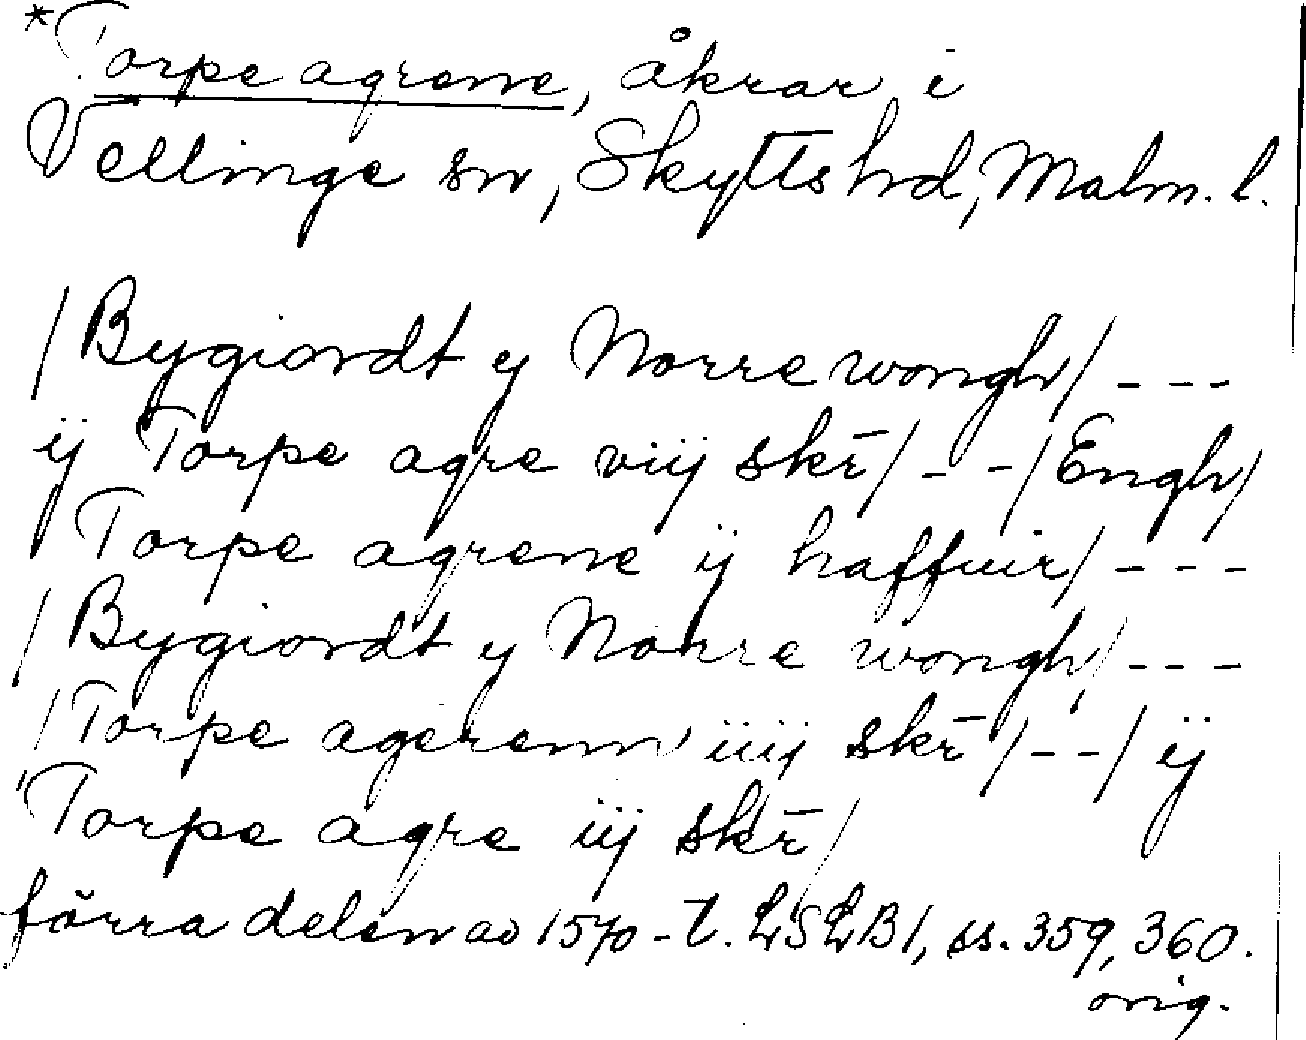 *Torpe agrene, åkrar i
Vellinge sn, Skytts hd, Malm. l.
/Bygiordt y Norre wongh/ - - -
ij Torpe agre viij skr̄/ - - /Engh/
Torpe agrene ij haffuir/ - - -
/Bygiordt y Norre wongh/ - - -
/Torpe agerenn iiij skr̄/ - - / ij
Torpe agre iij skr̄/
förra delen av 1570-t. LSLB1, ss. 359, 360.
orig.